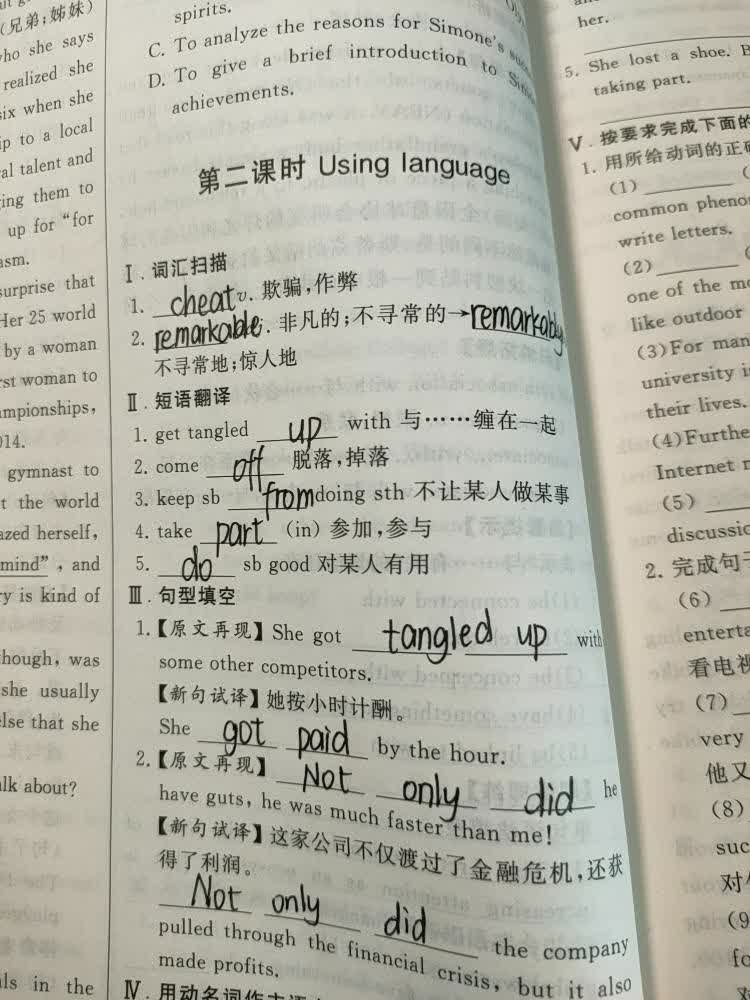 (兄弟;姊妹)
who she says
realized she
six when she
ip to a local
al talent and
ing them to
up for “for
asm.
surprise that
Her 25 world
by a woman
rst woman to
ampionships,
014.
gymnast to
t the world
azed herself,
mind”, and
ry is kind of
hough, was
she usually
else that she
lk about?
ls in the
spirits.
C. To analyze the reasons for Simone's
D. To give a brief introduction to
achievements.
第二课时 Using language
Ⅰ.词汇扫描
1. cheat v. 欺骗,作弊
2. remarkable j. 非凡的;不寻常的→remarkably
不寻常地;惊人地
Ⅱ.短语翻译
1. get tangled up with 与……缠在一起
2. come off 脱落,掉落
3. keep sb from doing sth 不让某人做某事
4. take part (in) 参加,参与
5. do sb good 对某人有用
Ⅲ.句型填空
1.【原文再现】She got tangled up with
some other competitors.
【新句试译】她按小时计酬。
She got paid by the hour.
2.【原文再现】 Not only did he
have guts, he was much faster than me!
【新句试译】这家公司不仅渡过了金融危机,还获
得了利润。
Not only did the company
pulled through the financial crisis, but it also
made profits.
Ⅳ.用动名词作主语
her.
5. She lost a shoe. B
taking part.
Ⅴ.按要求完成下面的
1. 用所给动词的正确
(1)
common pheno
write letters.
(2)
one of the mo
like outdoor
(3)For man
university i
their lives.
(4)Furthe
Internet
(5)
discussio
2. 完成句子
(6)
enterta
看电视
(7)
very
他又
(8)
suc
对
(9
fo